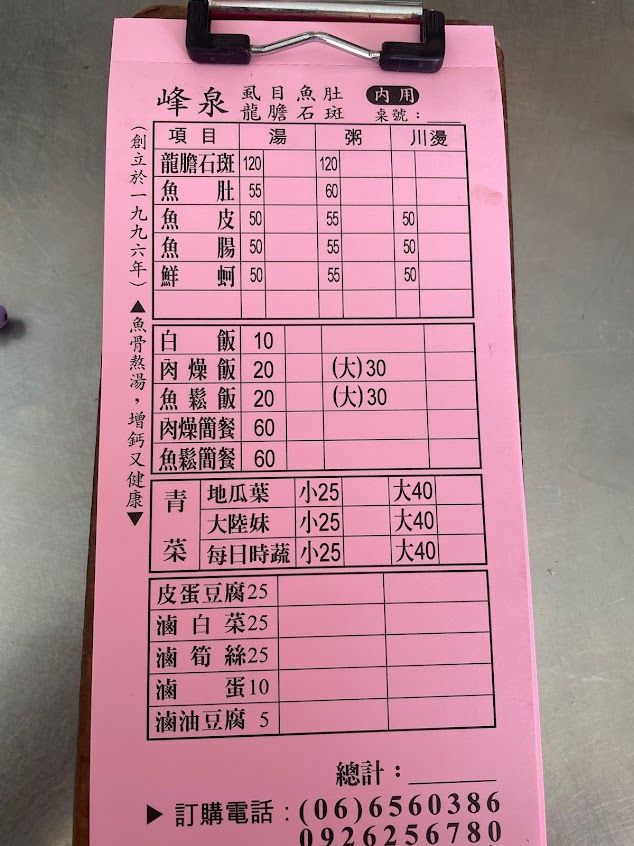 峰泉 虱目魚肚 內用
龍膽石斑 桌號：
(創立於一九九六年)
▲魚骨熬湯，增鈣又健康▼
項目 湯 粥 川燙
龍膽石斑 120 120
魚肚 55 60
魚皮 50 55 50
魚腸 50 55 50
鮮蚵 50 55 50
白飯 10
肉燥飯 20 (大)30
魚鬆飯 20 (大)30
肉燥簡餐 60
魚鬆簡餐 60
青菜
地瓜葉 小25 大40
大陸妹 小25 大40
每日時蔬 小25 大40
皮蛋豆腐25
滷白菜25
滷筍絲25
滷蛋10
滷油豆腐 5
總計：
▶ 訂購電話：(06)6560386
0926256780